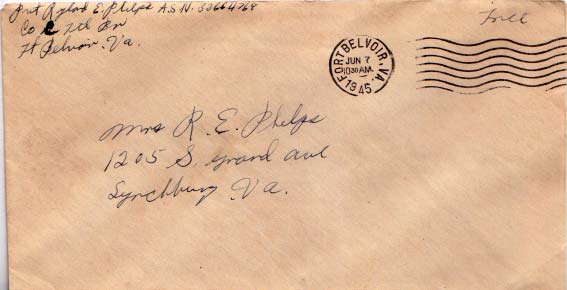 Pvt Rylod E. Phelps A.S.N. 33664769
Co C 7th Bn
Ft Belvoir, Va.
Free
FORT BELVOIR, VA.
JUN 7
1030 AM
1945
Mrs R. E. Phelps
1205 S. grand ave
Lynchburg Va.